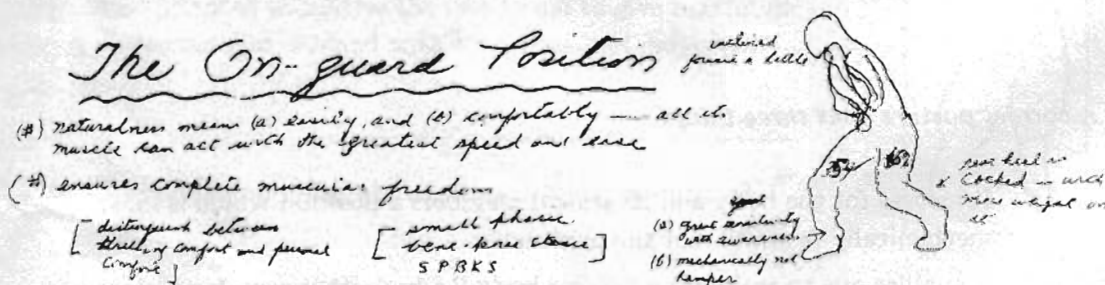 The On-guard Position
inclined
forward a little
(#) naturalness means (a) easily and (b) comfortably — all its
muscle can act with the greatest speed and ease
(#) ensures complete muscular freedom
[distinguish between
thrilling comfort and personal
comfort]
[small phasic
bent-knee stance]
SPBKS
(a) great similarity
with awareness
(b) mechanically not
hamper
rear heel is
cocked — with
more weight on
it